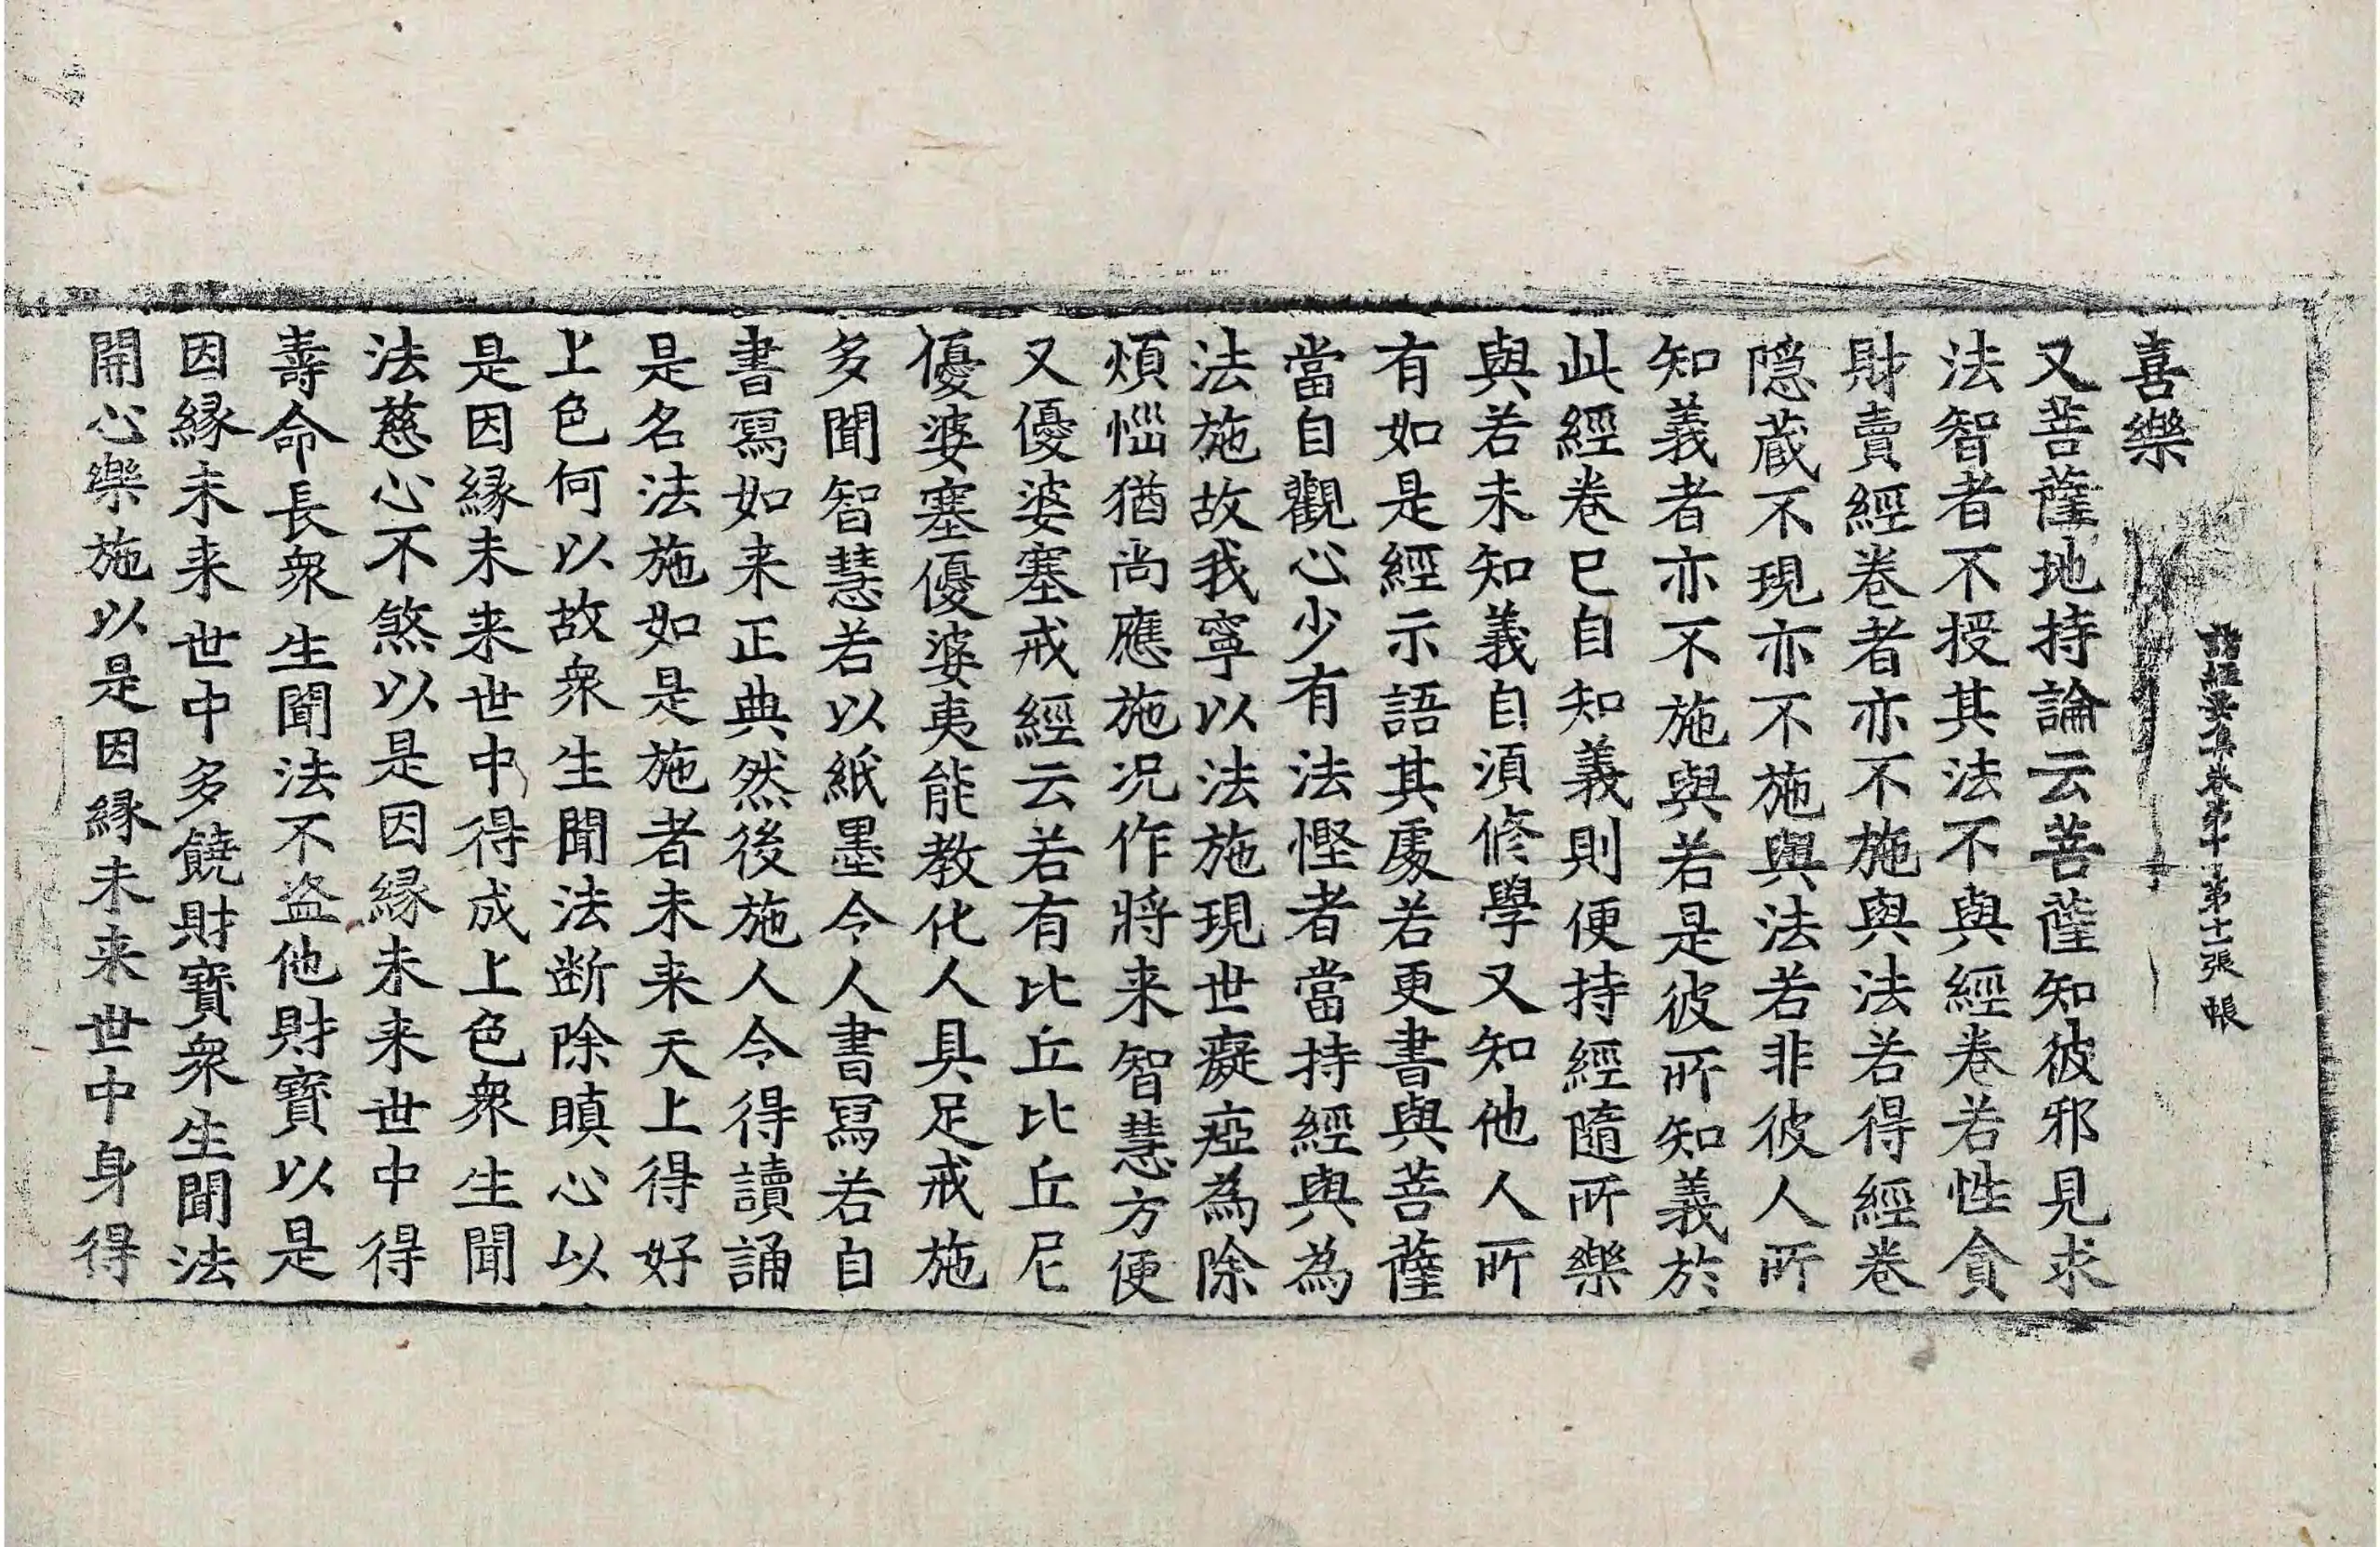 諸經要集卷第十 第十一張 帳
喜樂
又菩薩地持論云菩薩知彼邪見求
法智者不授其法不與經卷若性貪
財賣經卷者亦不施與法若得經卷
隱蔵不現亦不施與法若非彼人所
知義者亦不施與若是彼所知義於
此經卷已自知義則便持經隨所樂
與若未知義自湏修學又知他人所
有如是經示語其處若更書與菩薩
當自觀心少有法慳者當持經與為
法施故我寧以法施現世癡瘂為除
煩惱猶尚應施况作將来智慧方便
又優婆塞戒經云若有比丘比丘尼
優婆塞優婆夷能教化人具足戒施
多聞智慧若以紙墨令人書寫若自
書寫如来正典然後施人令得讀誦
是名法施如是施者未来天上得好
上色何以故衆生聞法断除瞋心以
是因緣未来世中得成上色衆生聞
法慈心不煞以是因緣未来世中得
壽命長衆生聞法不盗他財寶以是
因緣未来世中多饒財寶衆生聞法
開心樂施以是因緣未来世中身得